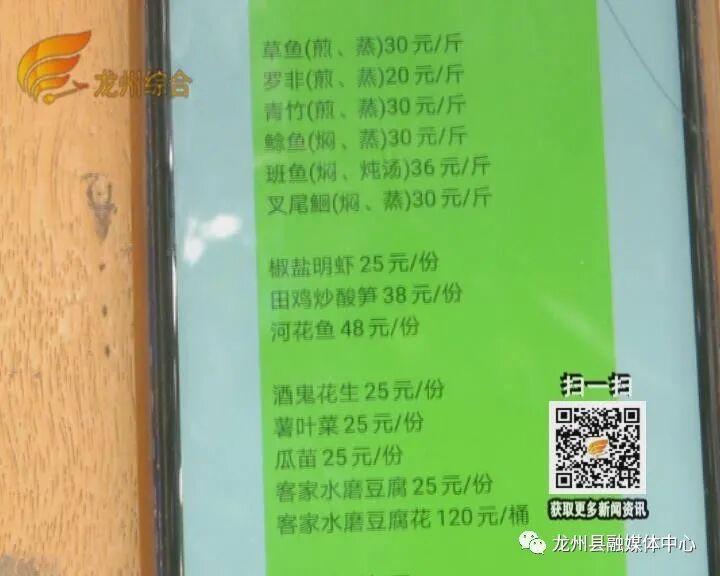 龙州综合
草鱼(煎、蒸)30元/斤
罗非(煎、蒸)20元/斤
青竹(煎、蒸)30元/斤
鲶鱼(焖、蒸)30元/斤
班鱼(焖、炖汤)36元/斤
叉尾鮰(焖、蒸)30元/斤
椒盐明虾25元/份
田鸡炒酸笋38元/份
河花鱼48元/份
酒鬼花生25元/份
薯叶菜25元/份
瓜苗25元/份
客家水磨豆腐25元/份
客家水磨豆腐花120元/桶
扫一扫
获取更多新闻资讯
龙州县融媒体中心